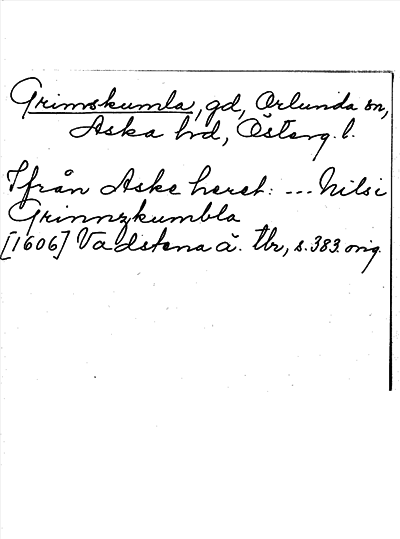 Grimskumla, gd, Orlunda sn,
Aska hd, Österg. l.
Ifrån Aske heret: --- Nilsi
Grinnzkumbla
[1606] Vadstena ä. tbr, s. 383. orig.